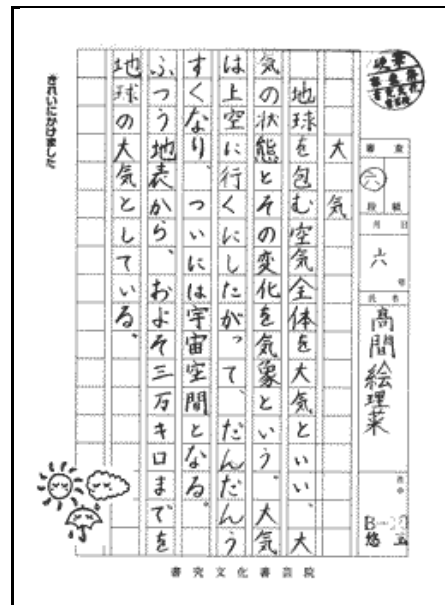 硬筆
審査
六
段級
月 日
六
号
氏名
髙間絵理菜
大気
地球を包む空気全体を大気といい、大
気の状態とその変化を気象という、大気
は上空に行くにしたがって、だんだんう
すくなり、ついには宇宙空間となる。
ふつう地表から、およそ三万キロまでを
地球の大気としている、
きれいにかけました
書究文化書芸院